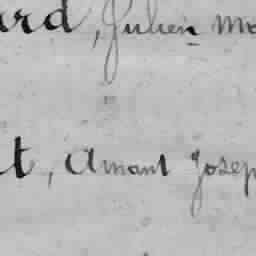 ard, Julien Ma
t, Amant Josep